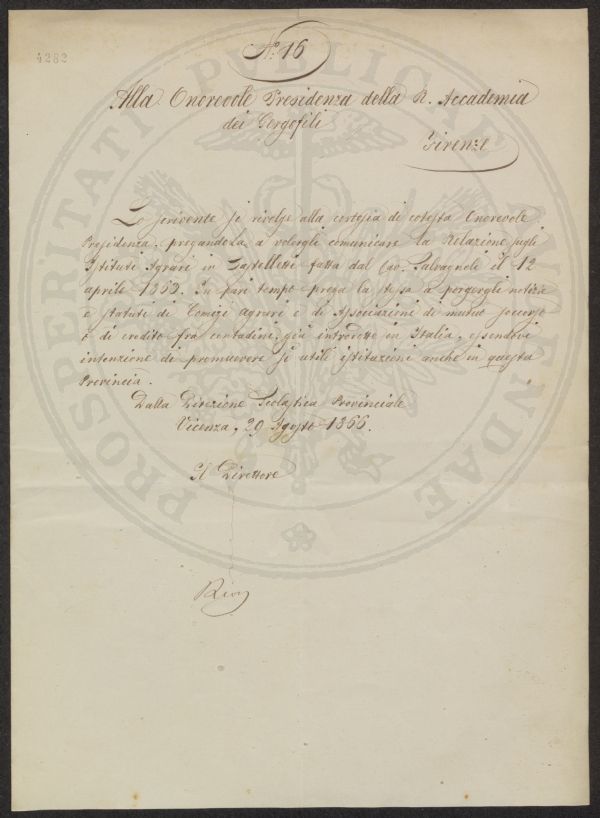 4282
N.° 16
Alla Onorevole Presidenza della R. Accademia
dei Gergofili
Firenze
Lo scrivente si rivolge alla cortesia di cotesta Onorevole
Presidenza, pregandola a volergli comunicare la Relazione sugli
Istituti Agrari in Castelletti fatta dal Cav. Salvagnoli il 12
aprile 1863. In pari tempo prega la stessa a porgergli notizie
e statuti di Comizi agrari e di Associazioni di mutuo soccorso
o di credito fra contadini, già introdotte in Italia, essendovi
intenzione di promuovere sì utili istituzione anche in questa
Provincia.
Dalla Direzione Scolastica Provinciale
Vicenza, 29 Agosto 1866.
Il Direttore
PROSPERITATI PUBLICAE AUGENDAE